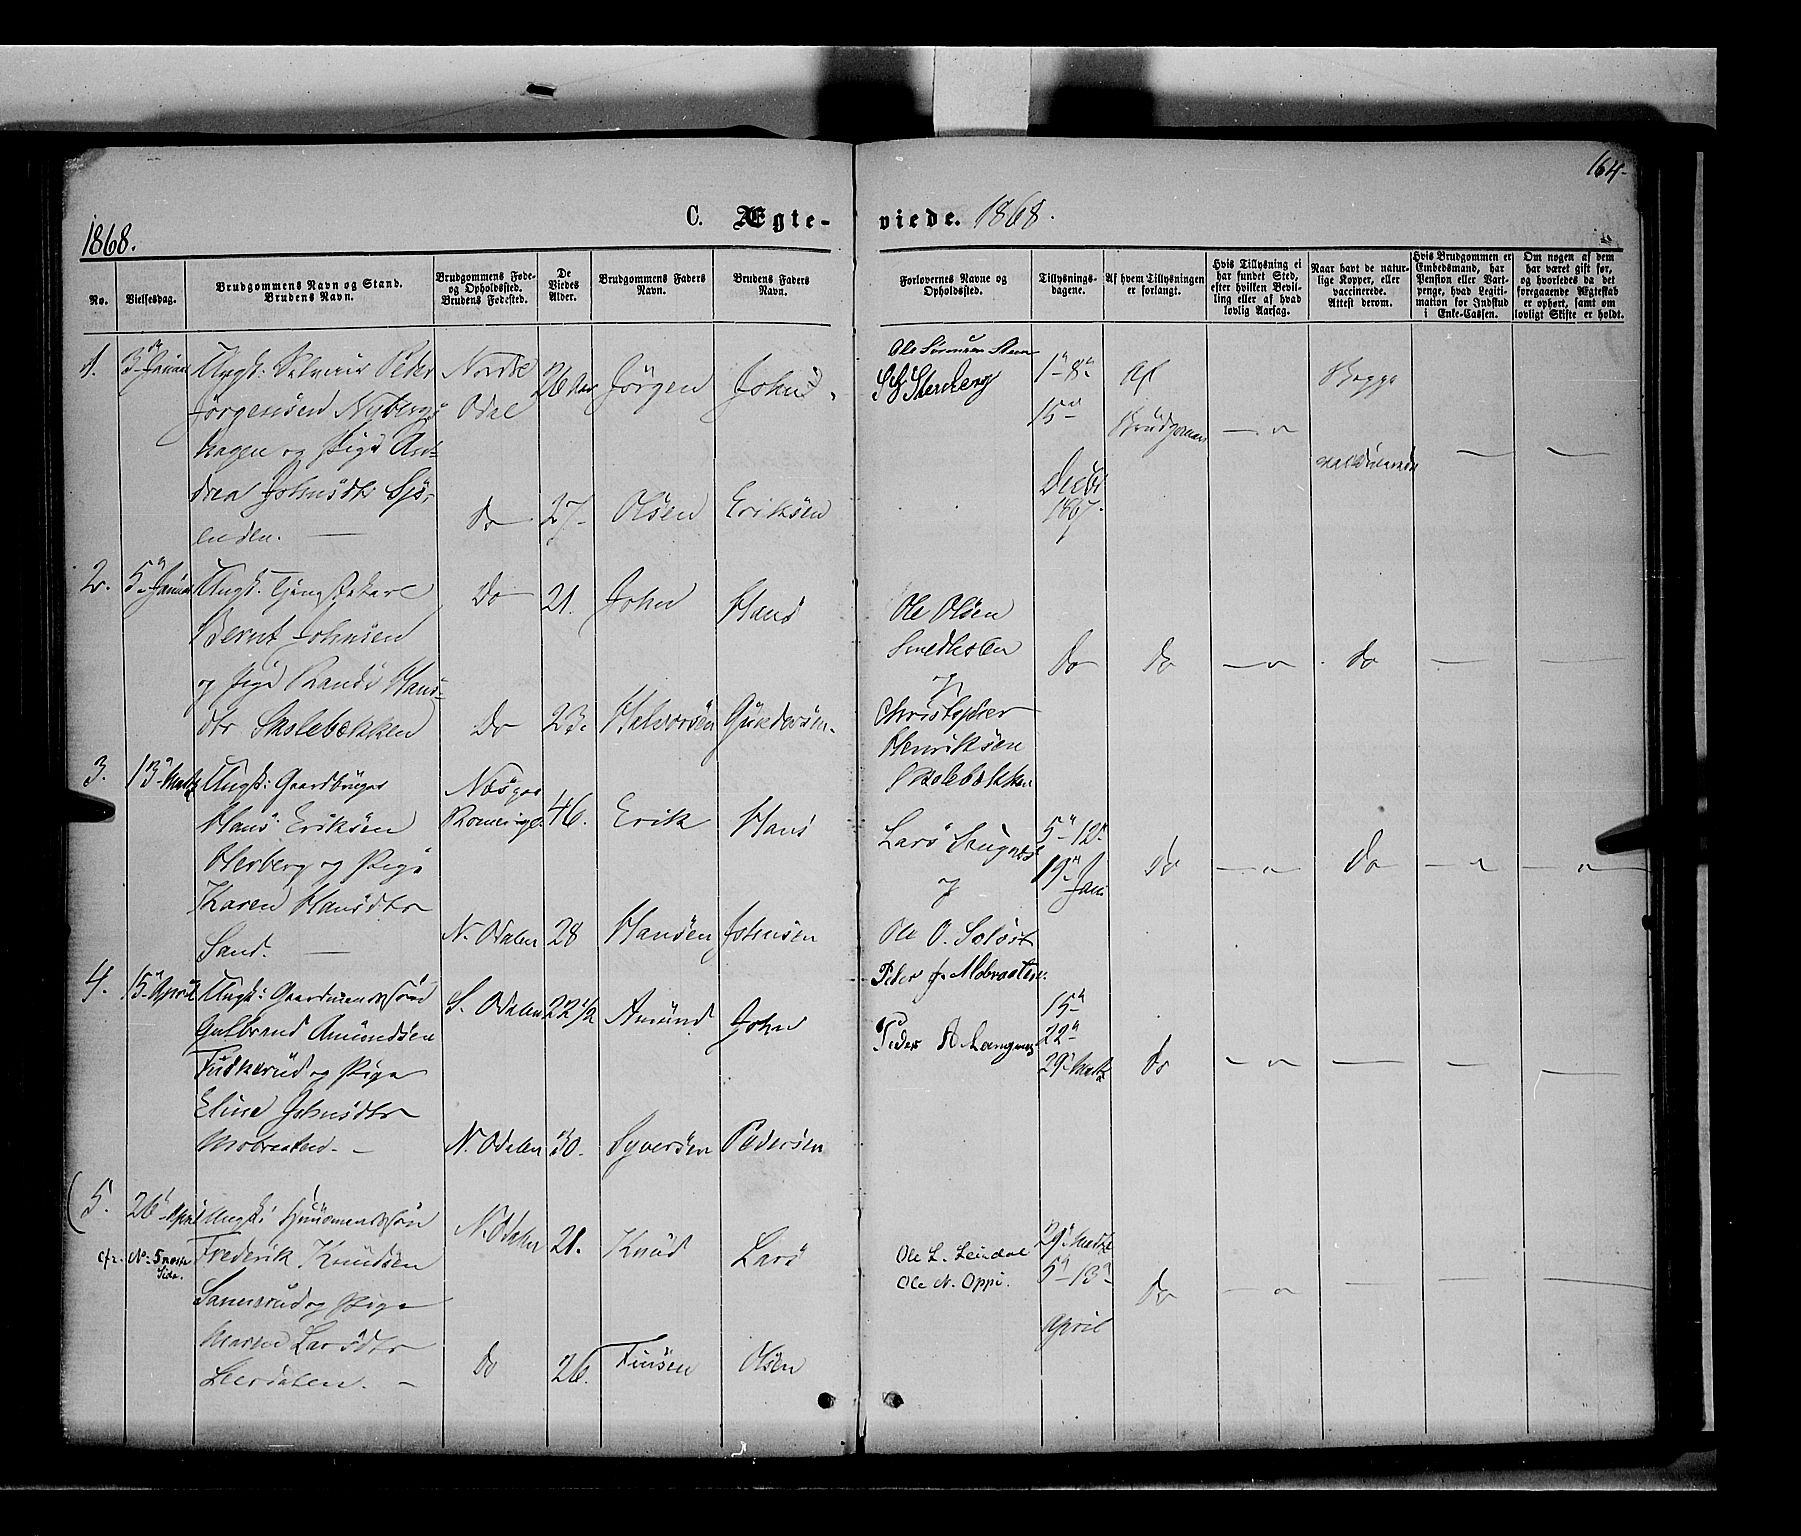 164-
1868.
C. Ægte- viede. 1868.
No.
Vielsesdag.
Brudgommens Navn og Stand.
Brudens Navn.
Brudgommens Føde-
og Opholdssted.
Brudens Fødested.
De
Viedes
Alder.
Brudgommens Faders
Navn.
Brudens Faders
Navn.
Forlovernes Navne og
Opholdssted.
Tillysnings-
dagene.
Af hvem Tillysningen
er forlangt.
Hvis Tillysning ei
har fundet Sted,
efter hvilken Bevil-
ling eller af hvad
lovlig Aarsag.
Naar havt de natur-
lige Kopper, eller
vaccinerede.
Attest derom.
Hvis Brudgommen er
Embedsmand, har
Pension eller Vart-
penge, hvad Legiti-
mation for Indskud
i Enke-Cassen.
Om nogen af dem
har været gift før,
og hvorledes da det
foregaaende Ægteskab
er ophørt, samt om
lovligt Skifte er holdt.
1.
Ungk: Peder
Jørgensen Nybergs-
hagen og Pige An-
drea Johnsdtr Sjø-
enden.
Nordre
Odal
Do
26 Aar
27
Jörgen
Olsen
Johns
Eriksen
Ole Sørensen
1-8-
15-
Decbr
1867.
Af
Brudgommen
Begge
vaccinerede
2.
5 Januar
Ungk. Tjenstekarl
Bernt Johnsen
og Pige Randi Hans-
dtr Skolebækken
Do
Do
21.
23.
John
Halvorsen
Hans
Gundersen
Ole Olsen
Christopher
Henriksen
Skolebækken
Do
Do
Do
3.
13 Marts
Ungk: Gaardbruger
Hans Eriksen
Herberg og Pige
Karen Hansdtr
Sand.
Næs
Romerige
N. Odalen
46.
28
Erik
Hansen
Hans
Johnsen
Lars
Ole O.
5-12-
19 Jan
Do
Do
4.
15 April
Ungk: Gaardmandssøn
Gulbrand Amundsen
og Pige
Eline Johnsdtr
S. Odalen
N. Odalen
22½
30.
Amund
Syversen
John
Pedersen
Peder
Peder A.
15-
22-
29 Marts
Do
5.
26 April
cfr. No. 5 næste
Side.
Ungk: Huusmandssøn
Frederik Knudsen
og Pige
Maren Larsdtr
Leerdalen.
N. Odalen
Do
21.
26.
Knud
Finsen
Lars
Olsen
Ole L. Leirdal
Ole N. Oppi.
29 Marts
5-13-
April
Do